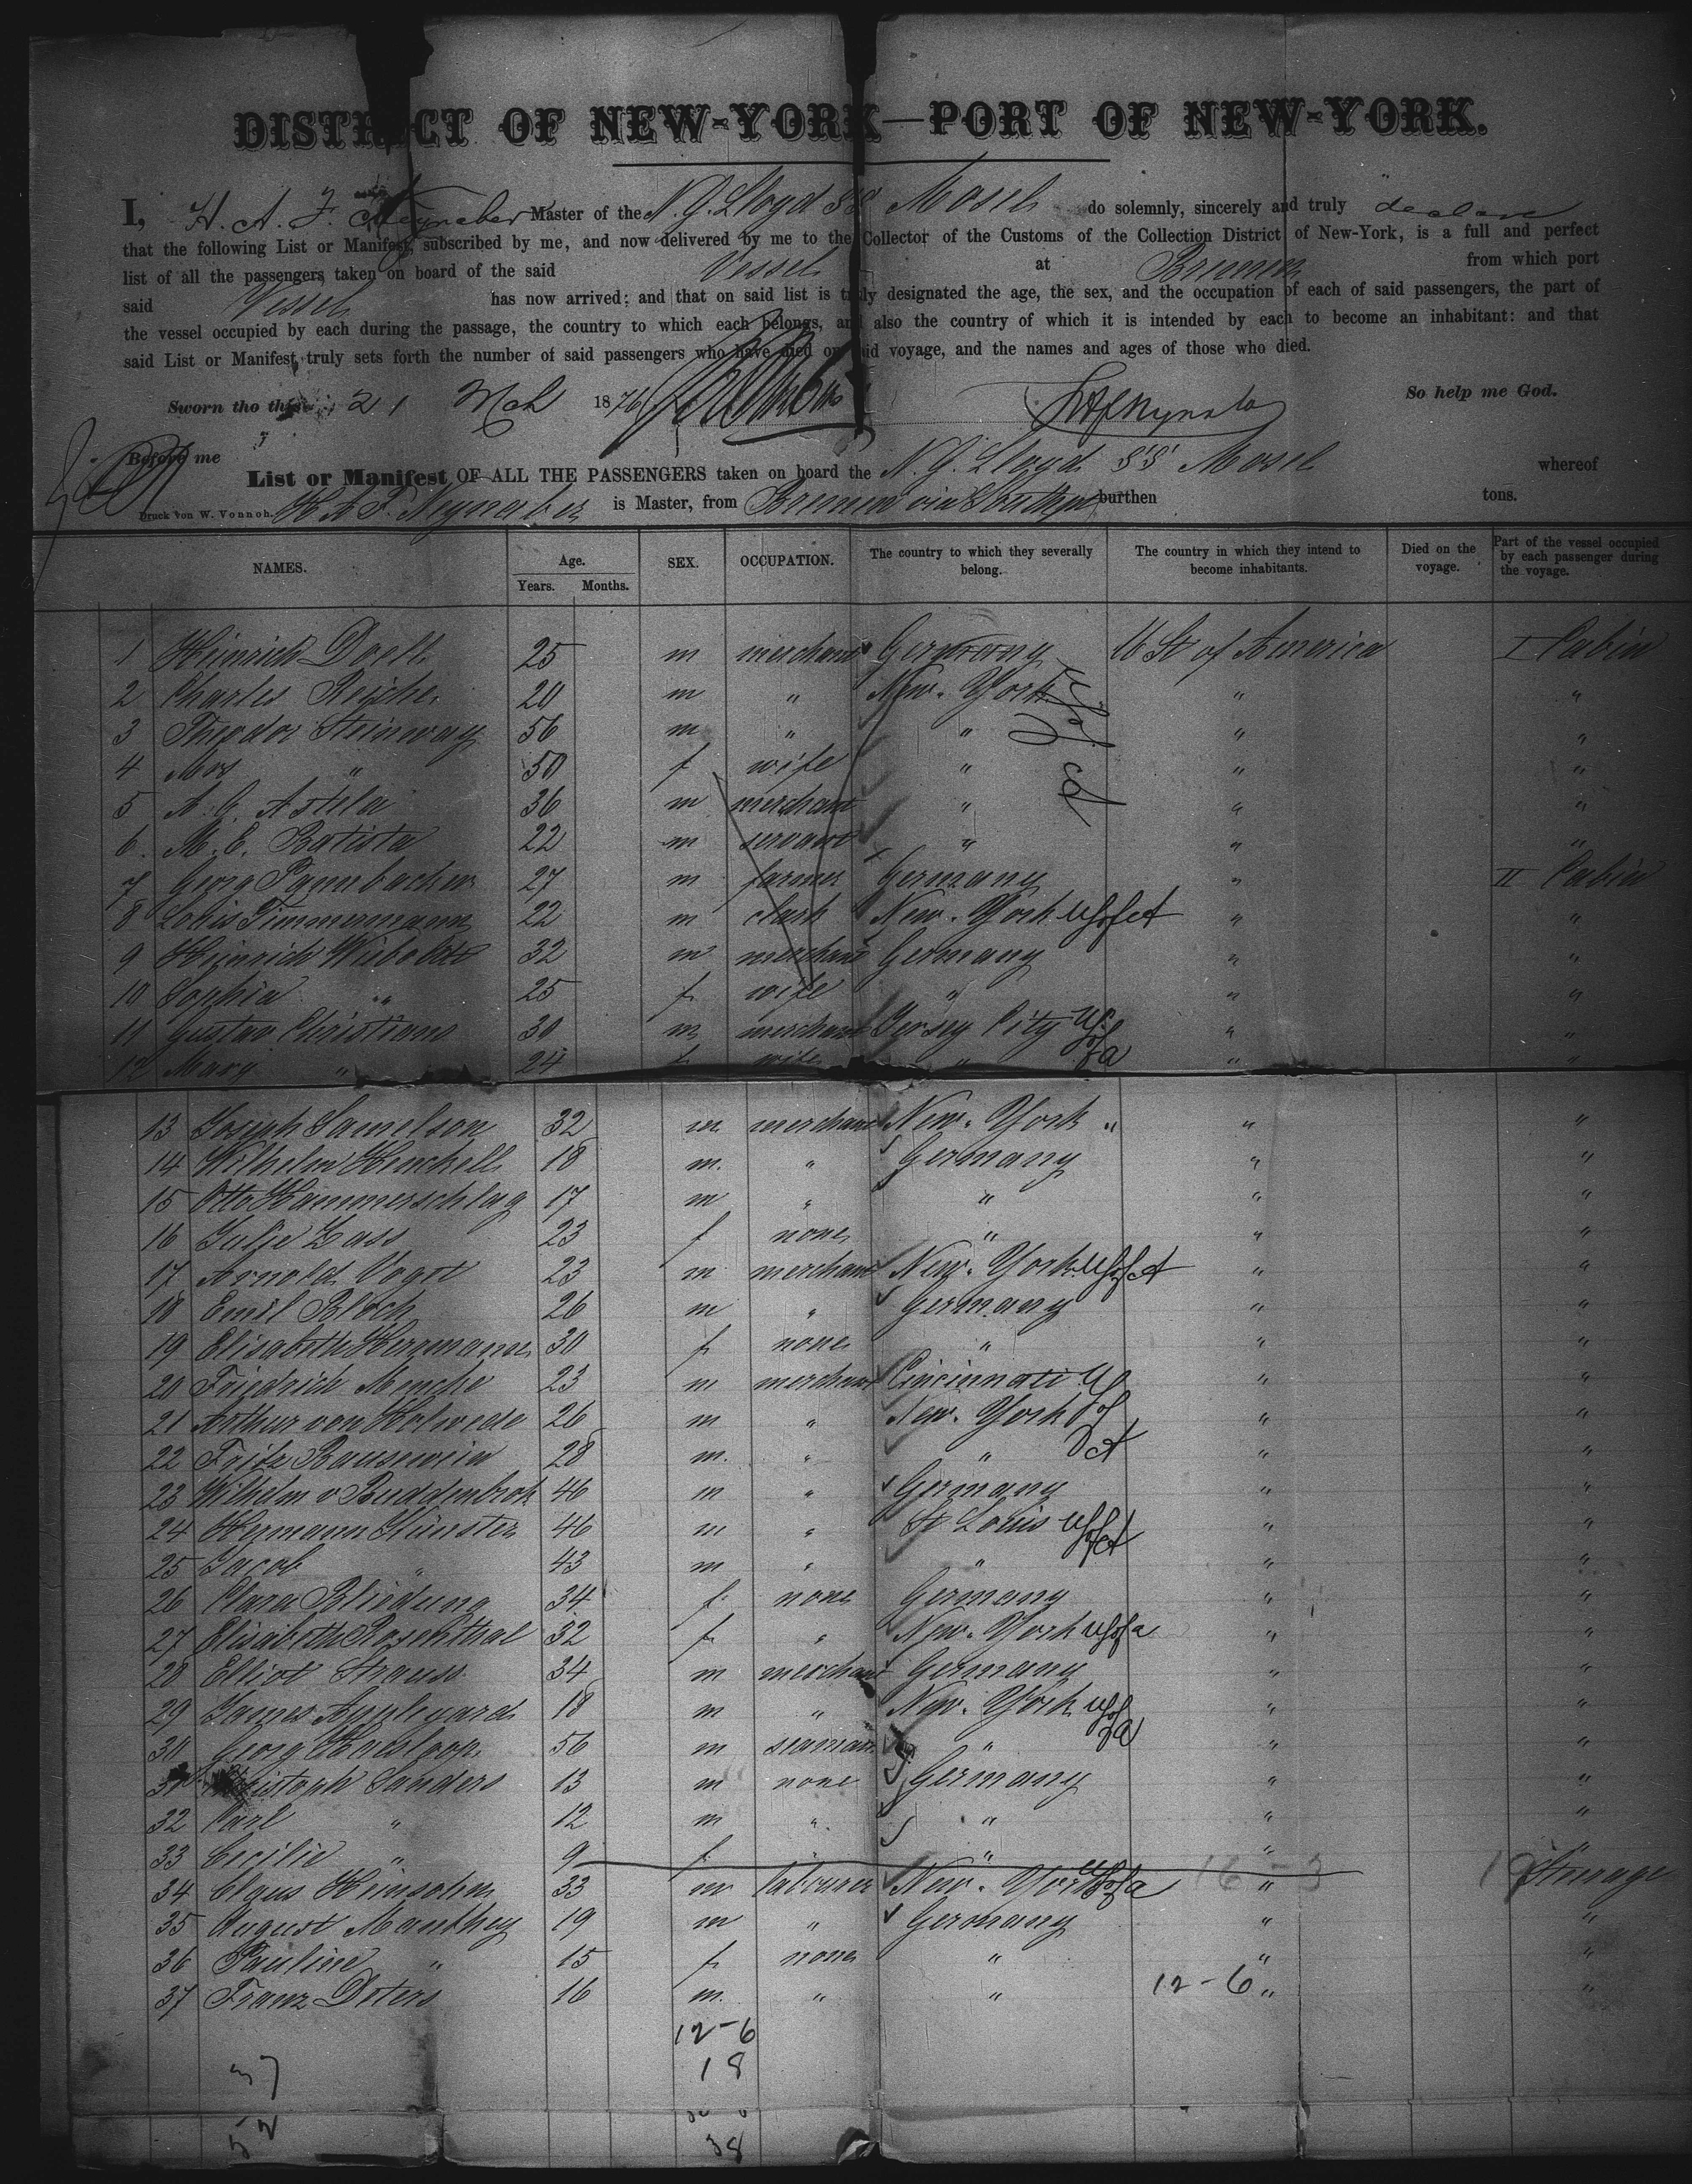 DISTRICT OF NEW-YORK—PORT OF NEW-YORK.
I, H. A. F. Neynaber Master of the N. G. Lloyd SS Mosel do solemnly, sincerely and truly declare
that the following List or Manifest, subscribed by me, and now delivered by me to the Collector of the Customs of the Collection District of New-York, is a full and perfect
list of all the passengers taken on board of the said Vessel at Bremen from which port
said Vessel has now arrived; and that on said list is truly designated the age, the sex, and the occupation of each of said passengers, the part of
the vessel occupied by each during the passage, the country to which each belongs, and also the country of which it is intended by each to become an inhabitant: and that
said List or Manifest truly sets forth the number of said passengers who have died on said voyage, and the names and ages of those who died.
Sworn tho this 21 Mch 1876 So help me God.
Before me
List or Manifest OF ALL THE PASSENGERS taken on board the N. G. Lloyd SS Mosel whereof
Druck von W. Vonnoh. H A F. Neynaber is Master, from Bremen via burthen tons.
NAMES. Age. Years. Months. SEX. OCCUPATION. The country to which they severally belong. The country in which they intend to become inhabitants. Died on the voyage. Part of the vessel occupied by each passenger during the voyage.
1 Heinrich Doell 25 m merchant Germany U St of America I Cabin
2 Charles Reiche 20 m " New-York " "
3 Theodor Steinway 56 m " " " "
4 Mrs " 50 f wife " " "
5 A. C. 36 m merchant " " "
6 M. E. Batista 22 m servant " " "
7 Georg 27 m farmer Germany " II Cabin
8 Louis Timmermann 22 m clerk New-York US of A " "
9 Heinrich Wieboldt 32 m merchant Germany " "
10 Sophia " 25 f wife " " "
11 Gustav Christians 30 m merchant Jersey City US of a " "
12 Mary " 24 f wife " " "
13 Joseph Samelson 32 m merchant New-York " " "
14 Wilhelm Henckell 18 m. " Germany " "
15 Otto Hammerschlag 17 m " " " "
16 Julje Zass 23 f none " " "
17 Arnold Vogt 23 m merchant New-York US of A " "
18 Emil Bloch 26 m " Germany " "
19 Elisabeth Herrmann 30 f none " " "
20 Friedrich Menche 23 m merchant Cincinnati US " "
21 Arthur von Holwede 26 m " New-York of " "
22 Fritz Bausewein 28 m. " " A " "
23 Wilhelm v Buddenbrok 46 m " Germany " "
24 Hermann Künster 46 m " St Louis US of A " "
25 Jacob " 43 m " " " "
26 Clara Blindung 34 f none Germany " "
27 Elisabeth Rosenthal 32 f " New-York US of a " "
28 Elliot Strauss 34 m merchant Germany " "
29 James Appleyard 18 m " New-York US of a " "
30 Georg 56 m seaman " " "
31 Christoph Sanders 13 m none Germany " "
32 Carl " 12 m " " " "
33 Cecilie " 9 f " " " "
34 Claus Heinsohn 33 m labourer New-York US of a 16-3 " 19 Steerage
35 August Manthey 19 m " Germany " "
36 Pauline " 15 f none " " "
37 Franz Deters 16 m. " " 12-6 " "
12-6
37 18
52 38